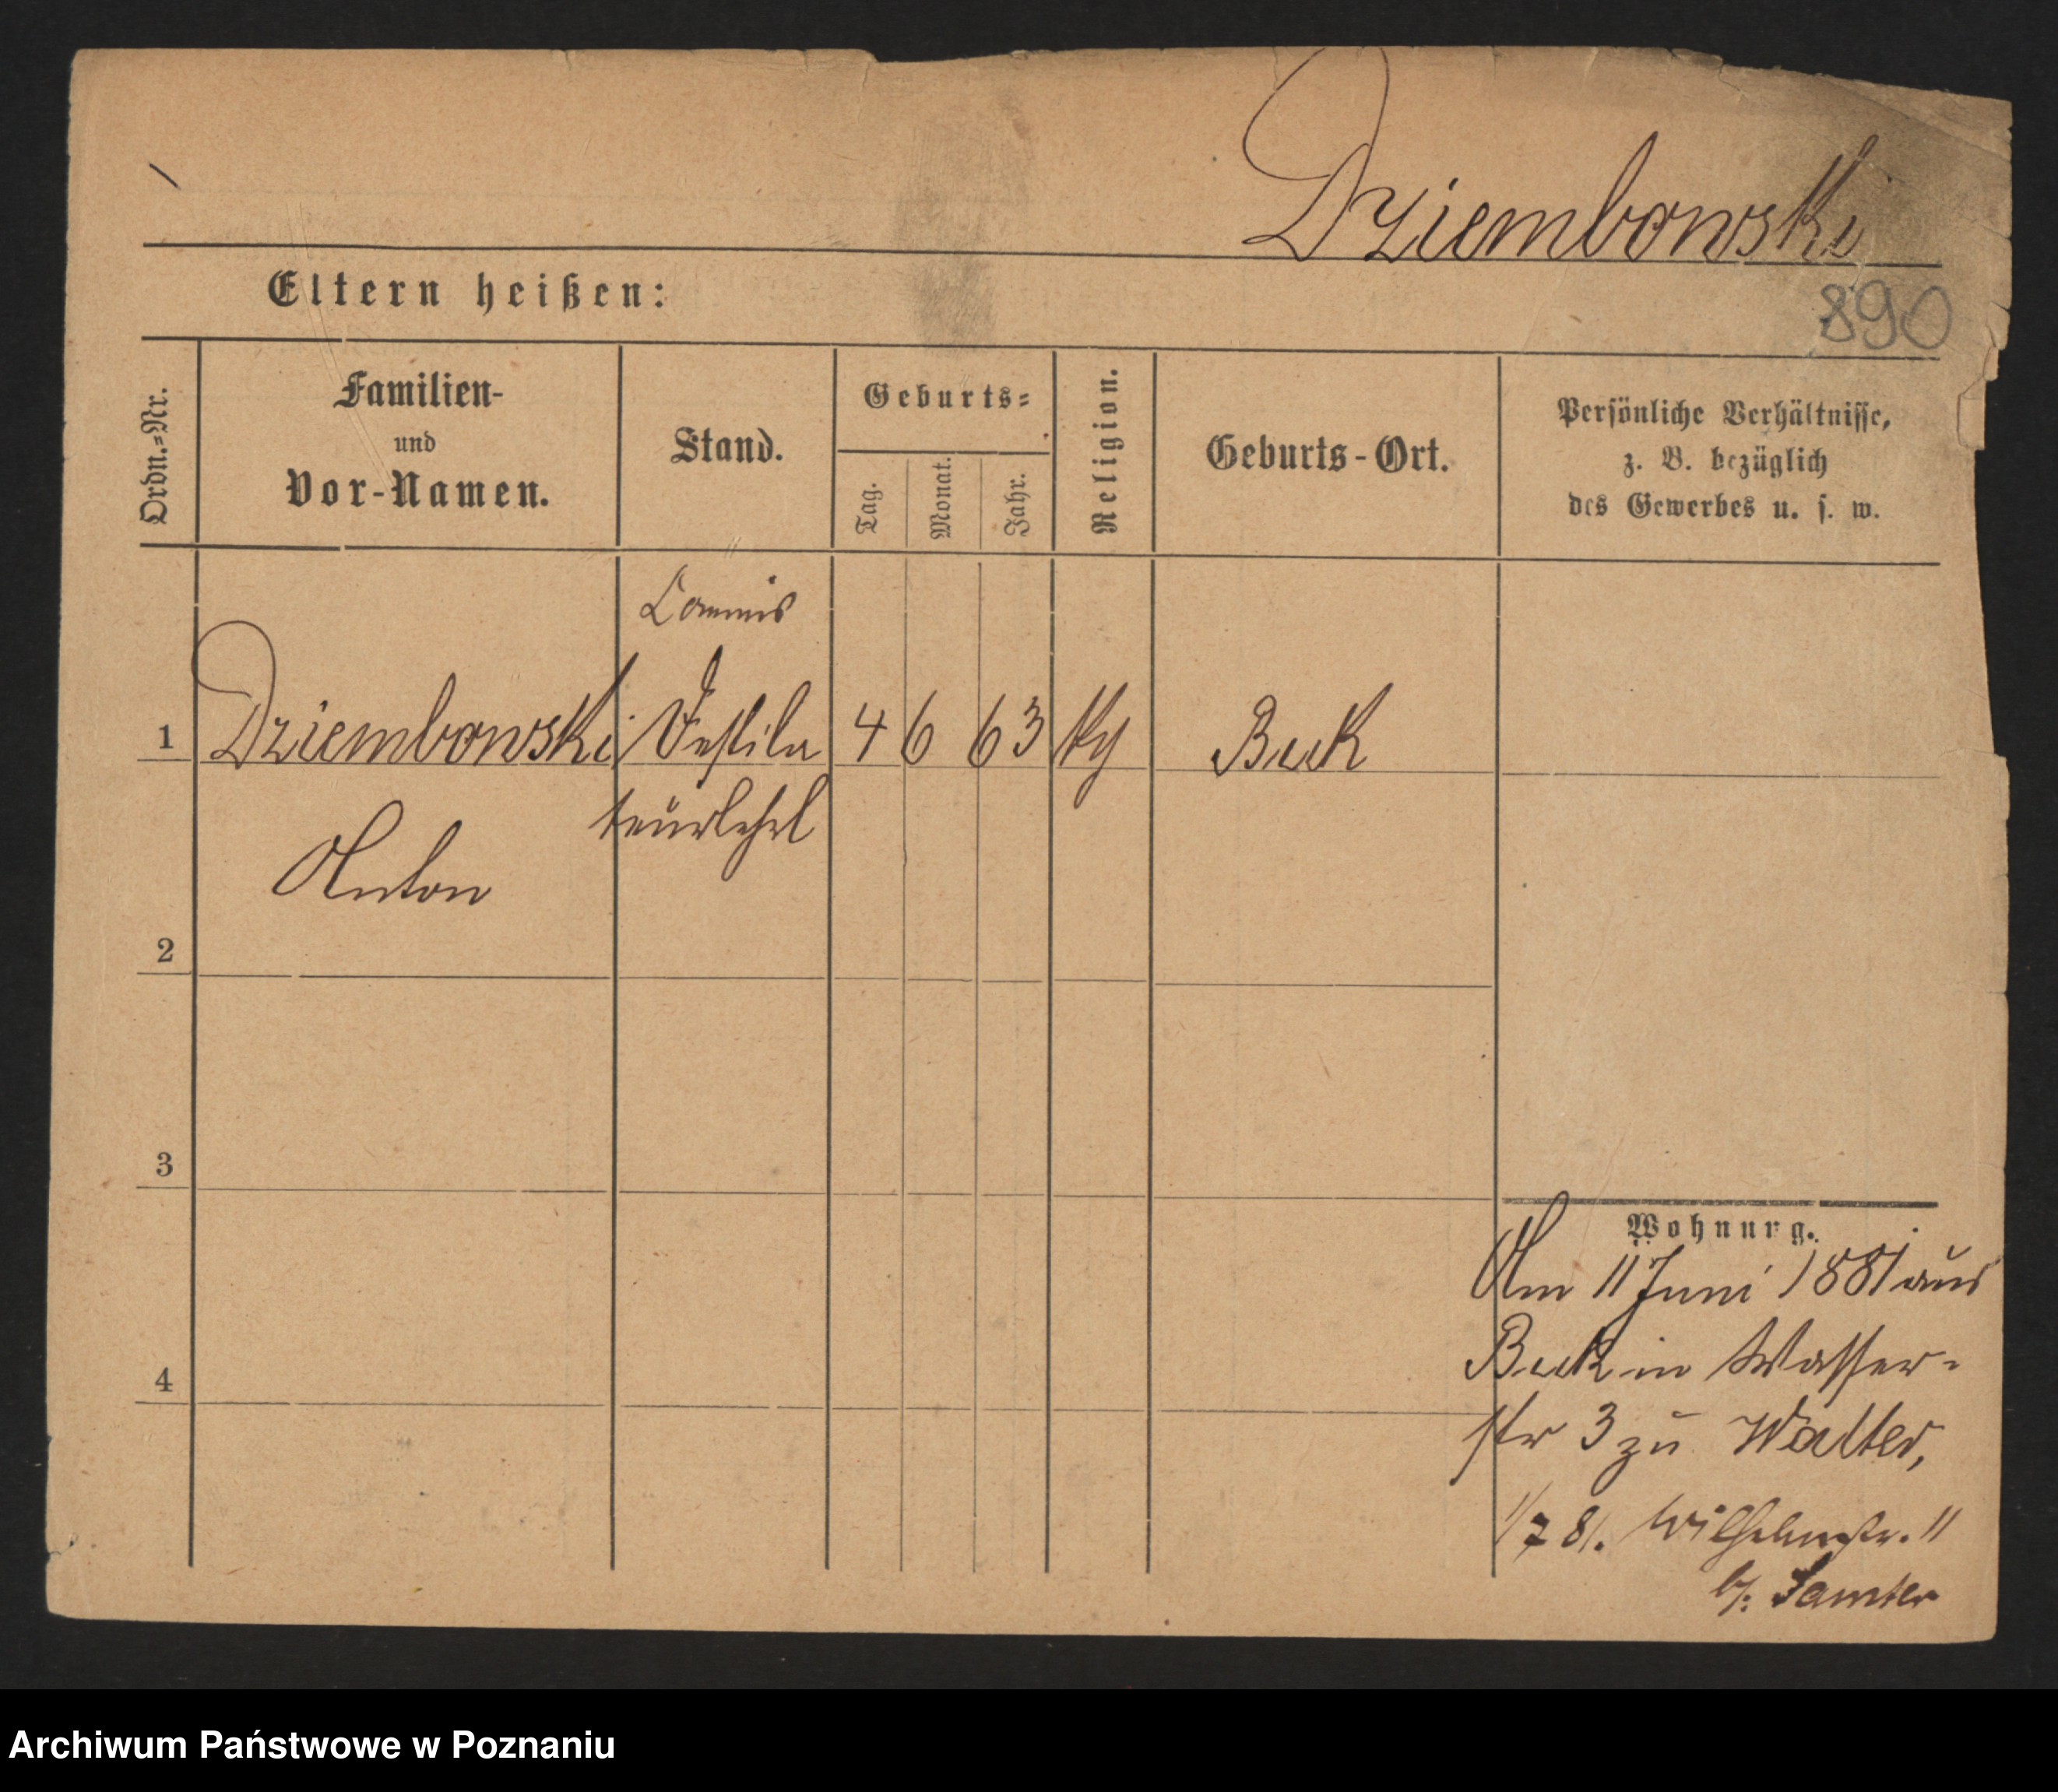 Dziembowski
Eltern heißen:
890
Ordn.=Nr.
Familien-
und
Vor-Namen.
Stand.
Geburts=
Tag.
Monat.
Jahr.
Religion.
Geburts-Ort.
Persönliche Verhältnisse,
z. B. bezüglich
des Gewerbes u. s. w.
Commis
1 Dziembowski Destila 4 6 63 Buk
teurlehrl
Anton
2
3
4
Wohnung.
Am 11 Juni 1881 aus
Buk in Wasser-
str 3 zu Walter,
1/7 81. Wilhelmstr. 11
b/: Samter
Archiwum Państwowe w Poznaniu